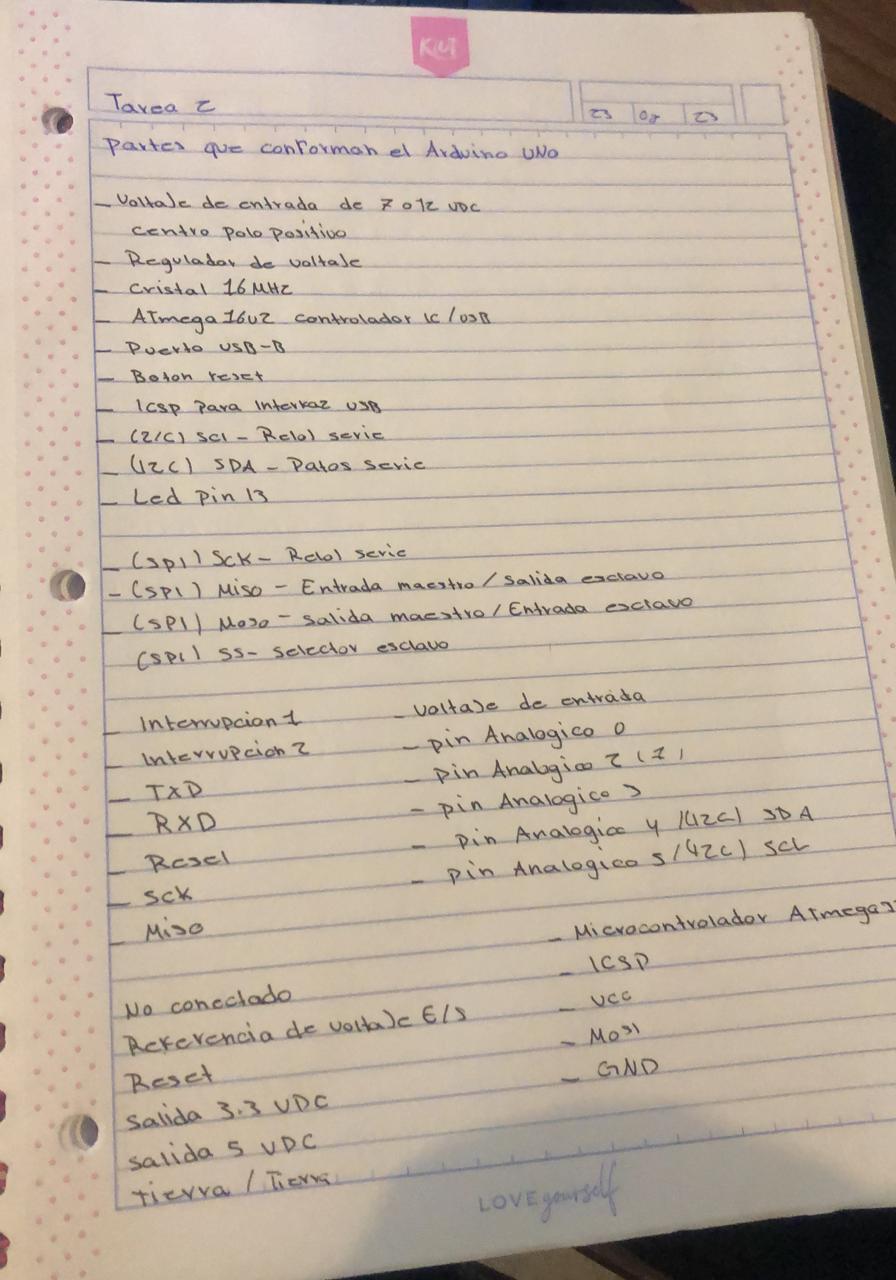 KIUT
Tarea 2
23 08 23
Partes que conforman el Arduino UNO
- Voltaje de entrada de 7 o 12 VDC
centro polo positivo
- Regulador de voltaje
- Cristal 16 MHz
- ATmega 16U2 controlador IC / USB
- Puerto USB-B
- Boton reset
- ICSP Para Interfaz USB
- (2/C) SCL - Reloj serie
- (I2C) SDA - Datos serie
- Led Pin 13
- (SPI) SCK - Reloj serie
- (SPI) MISO - Entrada maestro / salida esclavo
- (SPI) MOSO - salida maestro / Entrada esclavo
(SPI) SS - selector esclavo
- Interrupcion 1
- Interrupcion 2
- TXD
- RXD
- Reset
- SCK
- MISO
- Voltaje de entrada
- pin Analogico 0
- pin Analogico 2
- pin Analogico 3
- pin Analogico 4 / (I2C) SDA
- pin Analogico 5 / (I2C) SCL
No conectado
Referencia de voltaje E/S
Reset
Salida 3.3 VDC
Salida 5 VDC
tierra / Tierra
- Microcontrolador ATmega
- ICSP
- VCC
- MOSI
- GND
LOVE yourself